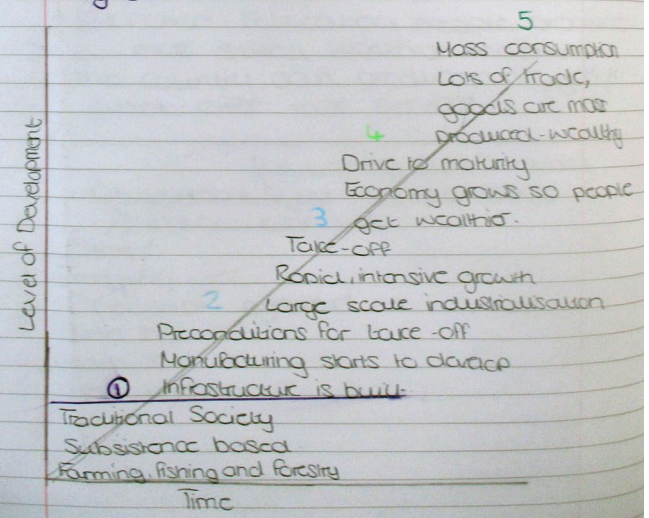 5
Mass consumption
Lots of trade,
goods are mass
produced-wealthy
4
Drive to maturity
Economy grows so people
get wealthier.
3
Take-off
Rapid, intensive growth
Large scale industrialisation
2
Preconditions for take-off
Manufacturing starts to develop
1
Infrastructure is built.
Traditional Society
Subsistence based
Farming, fishing and forestry
Time
Level of Development